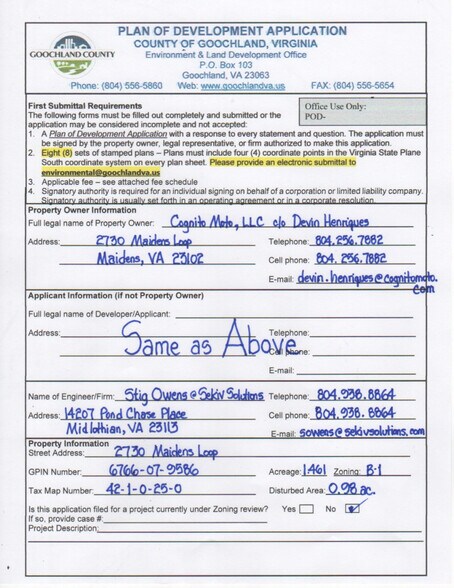 GOOCHLAND COUNTY
PLAN OF DEVELOPMENT APPLICATION
COUNTY OF GOOCHLAND, VIRGINIA
Environment & Land Development Office
P.O. Box 103
Goochland, VA 23063
Phone: (804) 556-5860 Web: www.goochlandva.us FAX: (804) 556-5654
First Submittal Requirements
The following forms must be filled out completely and submitted or the
application may be considered incomplete and not accepted:
Office Use Only:
POD-
1. A Plan of Development Application with a response to every statement and question. The application must
be signed by the property owner, legal representative, or firm authorized to make this application.
2. Eight (8) sets of stamped plans – Plans must include four (4) coordinate points in the Virginia State Plane
South coordinate system on every plan sheet. Please provide an electronic submittal to
environmental@goochlandva.us
3. Applicable fee – see attached fee schedule
4. Signatory authority is required for an individual signing on behalf of a corporation or limited liability company.
Signatory authority is usually set forth in an operating agreement or in a corporate resolution.
Property Owner Information
Full legal name of Property Owner: Cognito Moto, LLC c/o Devin Henriques
Address: 2730 Maidens Loop Telephone: 804.256.7882
Maidens, VA 23102 Cell phone: 804.256.7882
E-mail: devin.henriques@cognitomoto.
com
Applicant Information (if not Property Owner)
Full legal name of Developer/Applicant:
Address: Same as Above Telephone:
Cell phone:
E-mail:
Name of Engineer/Firm: Stig Owens @ Sekiv Solutions Telephone: 804.938.8864
Address: 14207 Pond Chase Place Cell phone: 804.938.8864
Midlothian, VA 23113 E-mail: sowens@sekivsolutions.com
Property Information
Street Address: 2730 Maidens Loop
GPIN Number: 6766-07-9586 Acreage: 1.461 Zoning: B-1
Tax Map Number: 42-1-0-25-0 Disturbed Area: 0.98 ac.
Is this application filed for a project currently under Zoning review? Yes No
If so, provide case #:
Project Description: